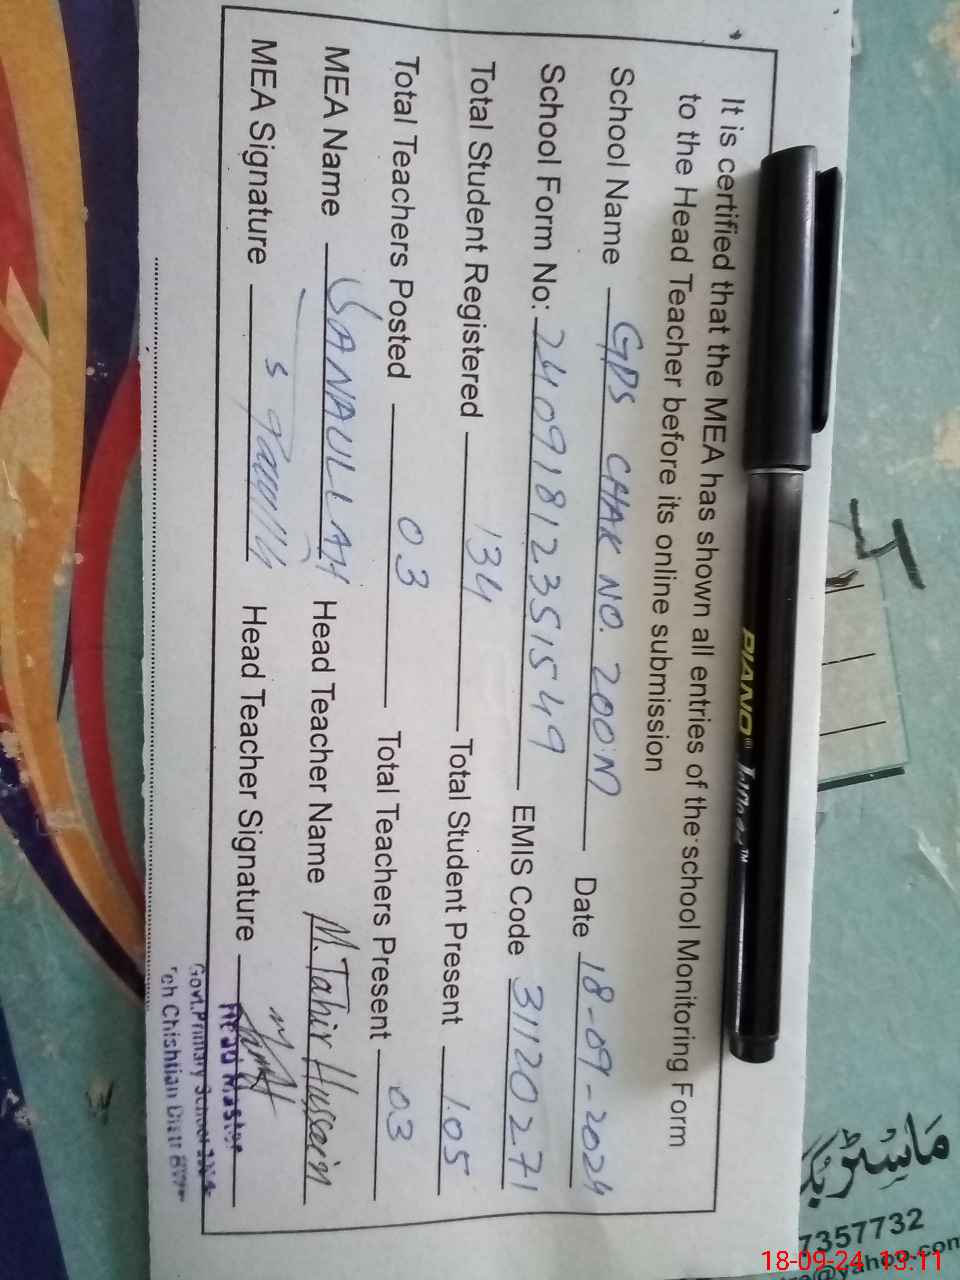 It is certified that the MEA has shown all entries of the school Monitoring Form
to the Head Teacher before its online submission
School Name GPS CHAK NO. 200/N Date 18-09-2024
School Form No: 2409181235 1549 EMIS Code 31120271
Total Student Registered 134 Total Student Present 105
Total Teachers Posted 03 Total Teachers Present 03
MEA Name SANAULLAH Head Teacher Name M. Tahir Hussain
MEA Signature Head Teacher Signature
Head Master
Govt. Primary School
Chishtian Distt
PIANO®
TM
ماسٹر
7357732
@yahoo.com
18-09-24 13:11